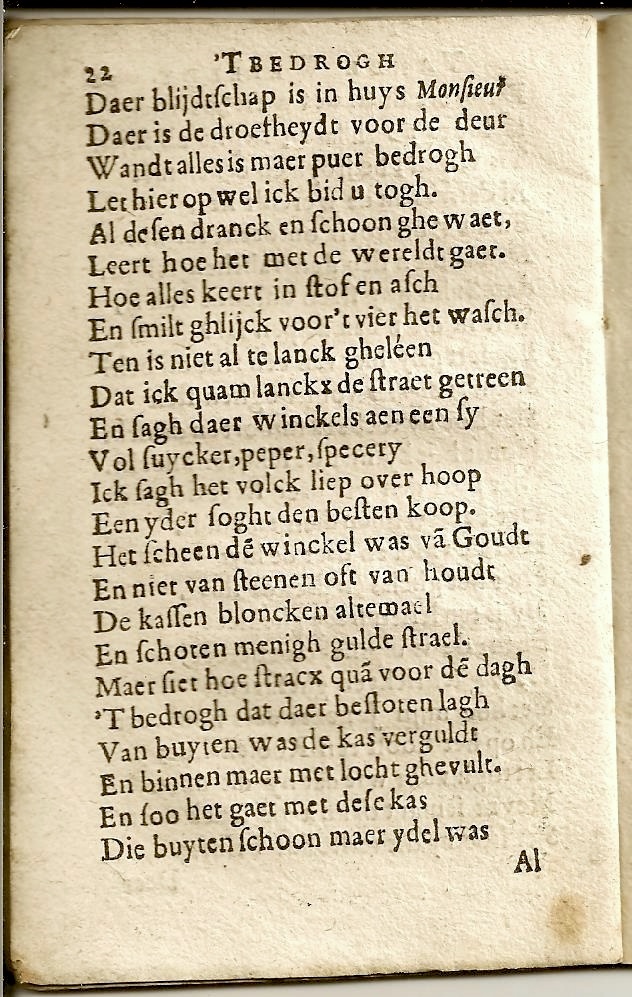 22 'TBEDROGH
Daer blijdtſchap is in huys Monſieur
Daer is de droefheydt voor de deur
Wandt alles is maer puer bedrogh
Let hier op wel ick bid u togh.
Al deſen dranck en ſchoon ghewaet,
Leert hoe het met de wereldt gaet.
Hoe alles keert in ſtof en aſch
En ſmilt ghlijck voor't vier het waſch.
Ten is niet al te lanck gheléen
Dat ick quam lanckx de ſtraet getreen
En ſagh daer winckels aen een ſy
Vol ſuycker,peper, ſpecery
Ick ſagh het volck liep over hoop
Een yder ſoght den beſten koop.
Het ſcheen dē winckel was vā Goudt
En niet van ſteenen oft van houdt
De kaſſen bloncken altemael
En ſchoten menigh gulde ſtrael.
Maer ſiet hoe ſtracx quā voor dē dagh
'T bedrogh dat daer beſloten lagh
Van buyten was de kas verguldt
En binnen maer met locht ghevult.
En ſoo het gaet met deſe kas
Die buyten ſchoon maer ydel was
Al